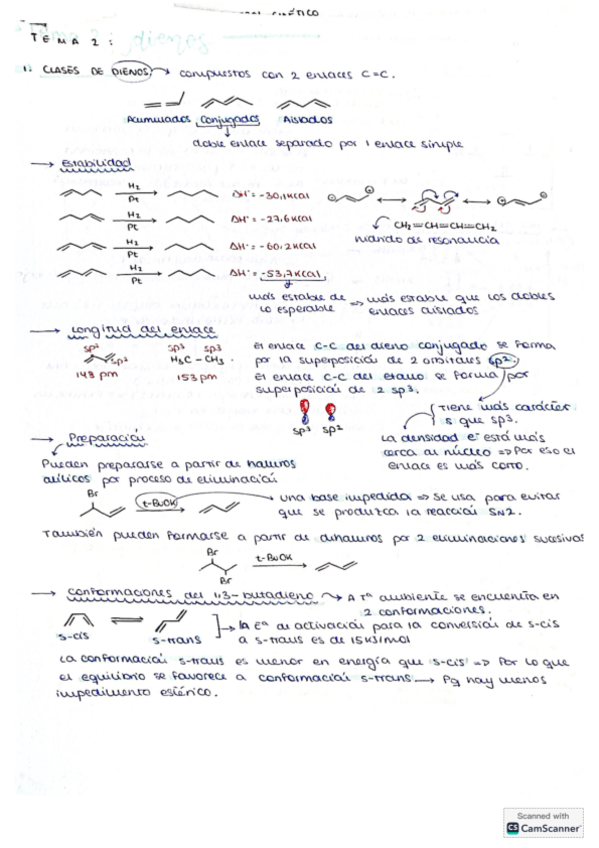 TEMA 2: dienos
1. CLASES DE DIENOS → compuestos con 2 enlaces C=C.
Acumulados Conjugados Aislados
doble enlace separado por 1 enlace simple
→ Estabilidad
H₂
Pt
ΔH° = -30,1 Kcal
H₂
Pt
ΔH° = -27,6 Kcal
CH₂=CH=CH=CH₂
híbrido de resonancia
H₂
Pt
ΔH° = -60,2 Kcal
H₂
Pt
ΔH° = -53,7 Kcal
más estable de lo esperable ⇒ más estable que los dobles enlaces aislados
→ Longitud del enlace
sp² sp²
148 pm
sp³ sp³
H₃C – CH₃.
153 pm
El enlace C-C del dieno conjugado se forma
por la superposición de 2 orbitales sp².
El enlace C-C del etano se forma por
superposición de 2 sp³.
sp³ sp²
Tiene más carácter
s que sp3.
La densidad e⁻ está más
cerca al núcleo ⇒ Por eso el
enlace es más corto.
→ Preparación
Pueden prepararse a partir de haluros
alílicos por proceso de eliminación
Br
t-BuOK
una base impedida ⇒ se usa para evitar
que se produzca la reacción SN2.
También pueden formarse a partir de dihaluros por 2 eliminaciones sucesivas
Br
Br
t-BuOK
→ Conformaciones del 1,3-butadieno → A Tª ambiente se encuentra en
2 conformaciones.
s-cis s-trans
→ la Eª de activación para la conversión de s-cis
a s-trans es de 15 KJ/mol
La conformación s-trans es menor en energía que s-cis ⇒ Por lo que
el equilibrio se favorece a conformación s-trans → Pq hay menos
impedimento estérico.
Scanned with
CS CamScanner